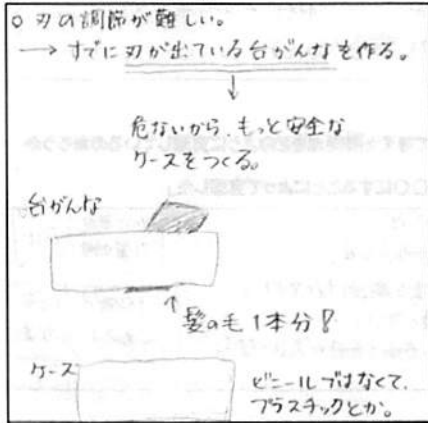 ○ 刃の調節が難しい。
→ すでに刃が出ている台がんなを作る。
↓
危ないから、もっと安全な
ケースをつくる。
台がんな
↑
髪の毛1本分!
ケース
ビニールではなくて、
プラスチックとか。